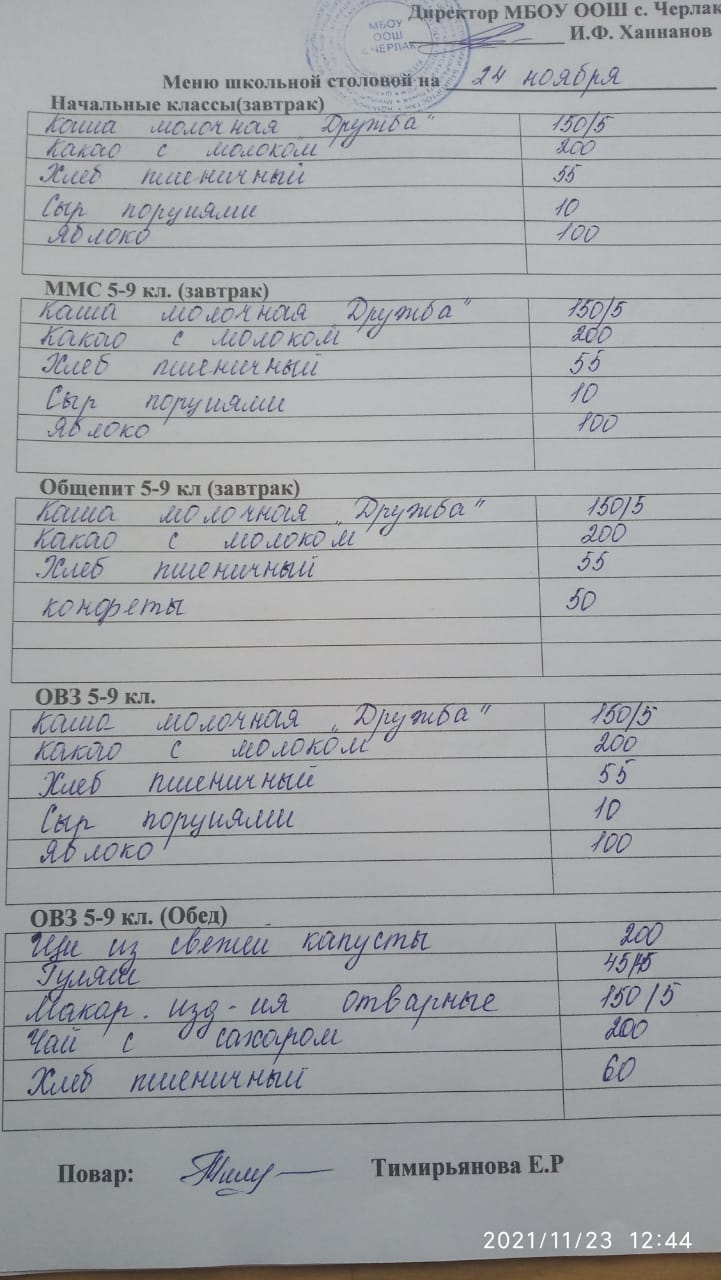 Директор МБОУ ООШ с. Черлак
И.Ф. Ханнанов
МБОУ
ООШ
с.ЧЕРЛАК
Меню школьной столовой на 24 ноября
Начальные классы(завтрак)
Каша молочная Дружба" 150/5
Какао с молоком 200
Хлеб пшеничный 55
Сыр порциями 10
Яблоко 100
ММС 5-9 кл. (завтрак)
Каша молочная Дружба" 150/5
Какао с молоком 200
Хлеб пшеничный 55
Сыр порциями 10
Яблоко 100
Общепит 5-9 кл (завтрак)
Каша молочная „Дружба" 150/5
Какао с молоком 200
Хлеб пшеничный 55
конфеты 50
ОВЗ 5-9 кл.
Каша молочная „Дружба" 150/5
какао с молоком 200
Хлеб пшеничный 55
Сыр порциями 10
Яблоко 100
ОВЗ 5-9 кл. (Обед)
Щи из свежей капусты 200
Гуляш 45/45
Макар. изд-ия отварные 150/5
Чай с сахаром 200
Хлеб пшеничный 60
Повар: Тимирьянова Е.Р
2021/11/23 12:44